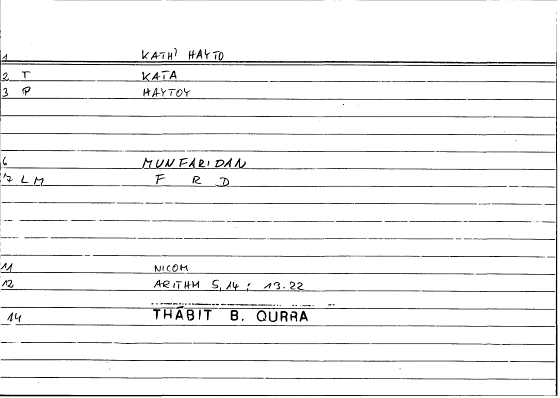 1 KATH' HAYTO
2 T KATA
3 P HAYTOY
6 MUNFARIDAN
7 LM F R D
11 NICOM
12 ARITHM 5,14 : 13.22
14 THĀBIT B. QURRA